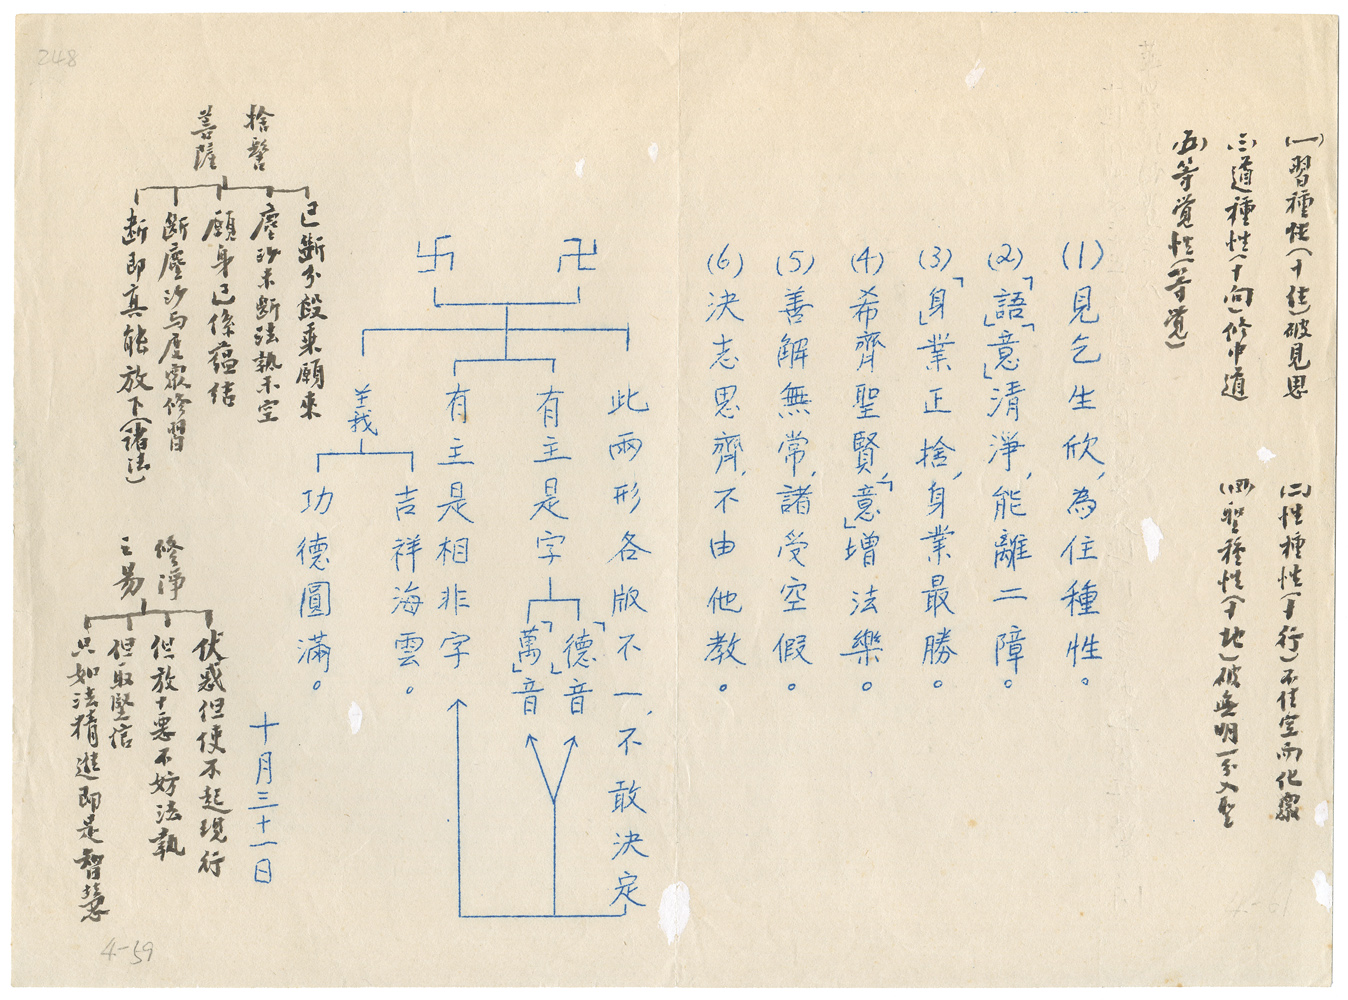 (一)習種性(十住)破見思
(二)性種性(十行)不住空而化眾
(三)道種性(十向)修中道
(四)聖種性(十地)破無明一分入聖
(五)等覺性(等覺)
(1)見乞生欣,為住種性。
(2)「語」「意」清淨,能離二障。
(3)「身」業正捨,身業最勝。
(4)希齊聖賢,「意」增法樂。
(5)善解無常,諸受空假。
(6)決志思齊,不由他教。
卍
卐
此兩形各版不一,不敢決定
有主是字
「德」音
「萬」音
有主是相非字
義
吉祥海雲。
功德圓滿。
十月三十一日
捨誓
菩薩
已斷分段乘願來
塵沙未斷法執未空
願身已係蘊結
斷塵沙與塵眾修習
斷即真能放下(諸法)
修淨
之易
伏惑但使不起現行
但放十惡不妨法執
但取堅信
只如法精進即是智慧
248
4-59
4-61